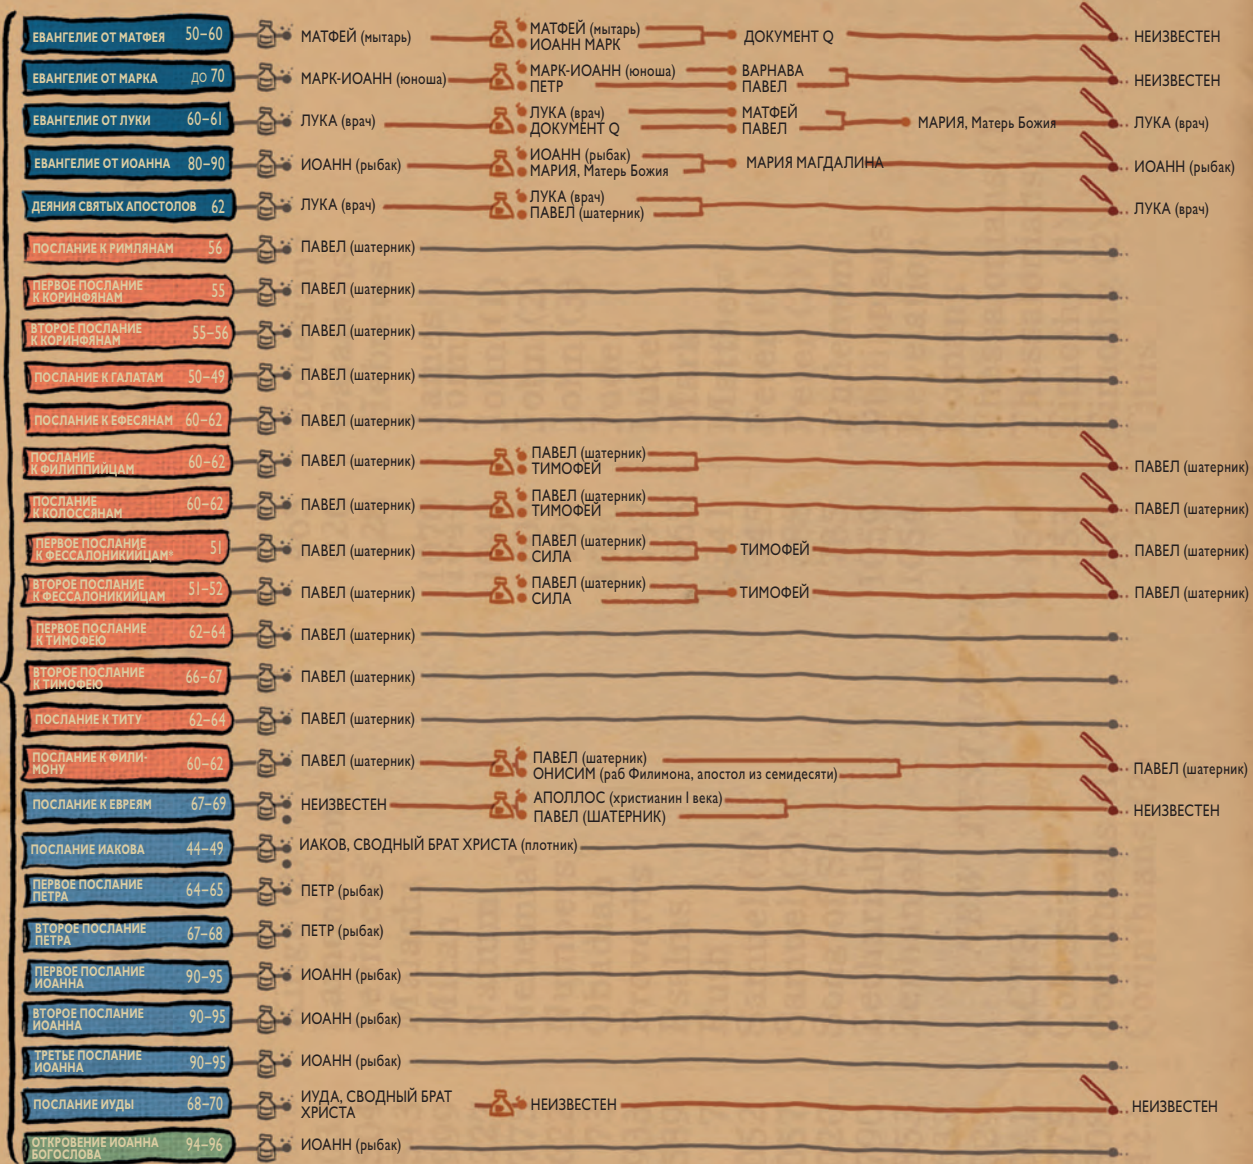 ЕВАНГЕЛИЕ ОТ МАТФЕЯ 50–60 МАТФЕЙ (мытарь) МАТФЕЙ (мытарь) ДОКУМЕНТ Q НЕИЗВЕСТЕН
ИОАНН МАРК
ЕВАНГЕЛИЕ ОТ МАРКА ДО 70 МАРК-ИОАНН (юноша) МАРК-ИОАНН (юноша) ВАРНАВА НЕИЗВЕСТЕН
ПЕТР ПАВЕЛ
ЕВАНГЕЛИЕ ОТ ЛУКИ 60–61 ЛУКА (врач) ЛУКА (врач) МАТФЕЙ МАРИЯ, Матерь Божия ЛУКА (врач)
ДОКУМЕНТ Q ПАВЕЛ
ЕВАНГЕЛИЕ ОТ ИОАННА 80–90 ИОАНН (рыбак) ИОАНН (рыбак) МАРИЯ МАГДАЛИНА ИОАНН (рыбак)
МАРИЯ, Матерь Божия
ДЕЯНИЯ СВЯТЫХ АПОСТОЛОВ 62 ЛУКА (врач) ЛУКА (врач) ЛУКА (врач)
ПАВЕЛ (шатерник)
ПОСЛАНИЕ К РИМЛЯНАМ 56 ПАВЕЛ (шатерник)
ПЕРВОЕ ПОСЛАНИЕ
К КОРИНФЯНАМ 55 ПАВЕЛ (шатерник)
ВТОРОЕ ПОСЛАНИЕ
К КОРИНФЯНАМ 55–56 ПАВЕЛ (шатерник)
ПОСЛАНИЕ К ГАЛАТАМ 50–49 ПАВЕЛ (шатерник)
ПОСЛАНИЕ К ЕФЕСЯНАМ 60–62 ПАВЕЛ (шатерник)
ПОСЛАНИЕ
К ФИЛИППИЙЦАМ 60–62 ПАВЕЛ (шатерник) ПАВЕЛ (шатерник) ПАВЕЛ (шатерник)
ТИМОФЕЙ
ПОСЛАНИЕ
К КОЛОССЯНАМ 60–62 ПАВЕЛ (шатерник) ПАВЕЛ (шатерник) ПАВЕЛ (шатерник)
ТИМОФЕЙ
ПЕРВОЕ ПОСЛАНИЕ
К ФЕССАЛОНИКИЙЦАМ* 51 ПАВЕЛ (шатерник) ПАВЕЛ (шатерник) ТИМОФЕЙ ПАВЕЛ (шатерник)
СИЛА
ВТОРОЕ ПОСЛАНИЕ
К ФЕССАЛОНИКИЙЦАМ 51–52 ПАВЕЛ (шатерник) ПАВЕЛ (шатерник) ТИМОФЕЙ ПАВЕЛ (шатерник)
СИЛА
ПЕРВОЕ ПОСЛАНИЕ
К ТИМОФЕЮ 62–64 ПАВЕЛ (шатерник)
ВТОРОЕ ПОСЛАНИЕ
К ТИМОФЕЮ 66–67 ПАВЕЛ (шатерник)
ПОСЛАНИЕ К ТИТУ 62–64 ПАВЕЛ (шатерник)
ПОСЛАНИЕ К ФИЛИ-
МОНУ 60–62 ПАВЕЛ (шатерник) ПАВЕЛ (шатерник) ПАВЕЛ (шатерник)
ОНИСИМ (раб Филимона, апостол из семидесяти)
ПОСЛАНИЕ К ЕВРЕЯМ 67–69 НЕИЗВЕСТЕН АПОЛЛОС (христианин I века) НЕИЗВЕСТЕН
ПАВЕЛ (ШАТЕРНИК)
ПОСЛАНИЕ ИАКОВА 44–49 ИАКОВ, СВОДНЫЙ БРАТ ХРИСТА (плотник)
ПЕРВОЕ ПОСЛАНИЕ
ПЕТРА 64–65 ПЕТР (рыбак)
ВТОРОЕ ПОСЛАНИЕ
ПЕТРА 67–68 ПЕТР (рыбак)
ПЕРВОЕ ПОСЛАНИЕ
ИОАННА 90–95 ИОАНН (рыбак)
ВТОРОЕ ПОСЛАНИЕ
ИОАННА 90–95 ИОАНН (рыбак)
ТРЕТЬЕ ПОСЛАНИЕ
ИОАННА 90–95 ИОАНН (рыбак)
ПОСЛАНИЕ ИУДЫ 68–70 ИУДА, СВОДНЫЙ БРАТ
ХРИСТА НЕИЗВЕСТЕН НЕИЗВЕСТЕН
ОТКРОВЕНИЕ ИОАННА
БОГОСЛОВА 94–96 ИОАНН (рыбак)